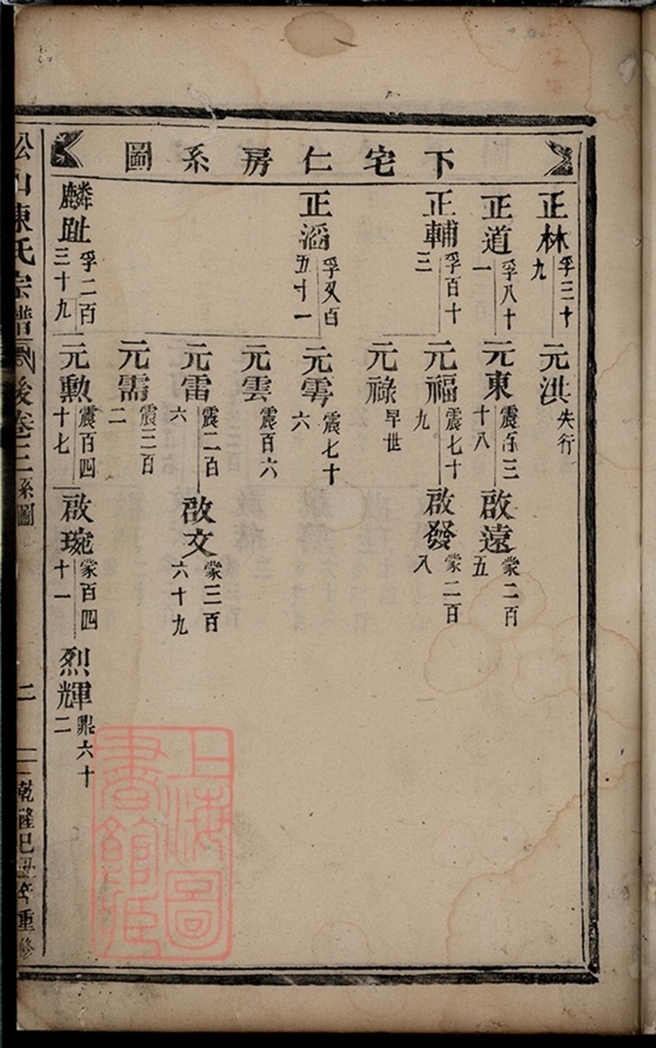 下宅仁房系圖
正林 孚三十九
元洪 失行
正道 孚八十一
元東 十八
啟遠 蒙二百五
正輔 孚百十三
元福 震七十九
啟發 蒙二百八
元祿 早世
正滔 五十一
元雩 震七十六
元雲 震百六
元雷 震二百六
啟文 蒙三百六十九
元需 震三百二
麟趾 孚二百三十九
元勲 震百四十七
啟琬 蒙百四十一
烈輝 鼎六十二
松山陳氏宗譜 後卷三 系圖
二
乾隆己丑年重修
上海圖書館藏